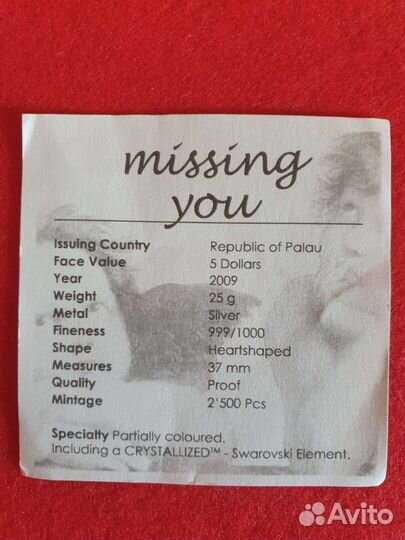 missing
you
Issuing Country Republic of Palau
Face Value 5 Dollars
Year 2009
Weight 25 g
Metal Silver
Fineness 999/1000
Shape Heartshaped
Measures 37 mm
Quality Proof
Mintage 2'500 Pcs
Specialty Partially coloured.
Including a CRYSTALLIZED™ - Swarovski Element.
Avito